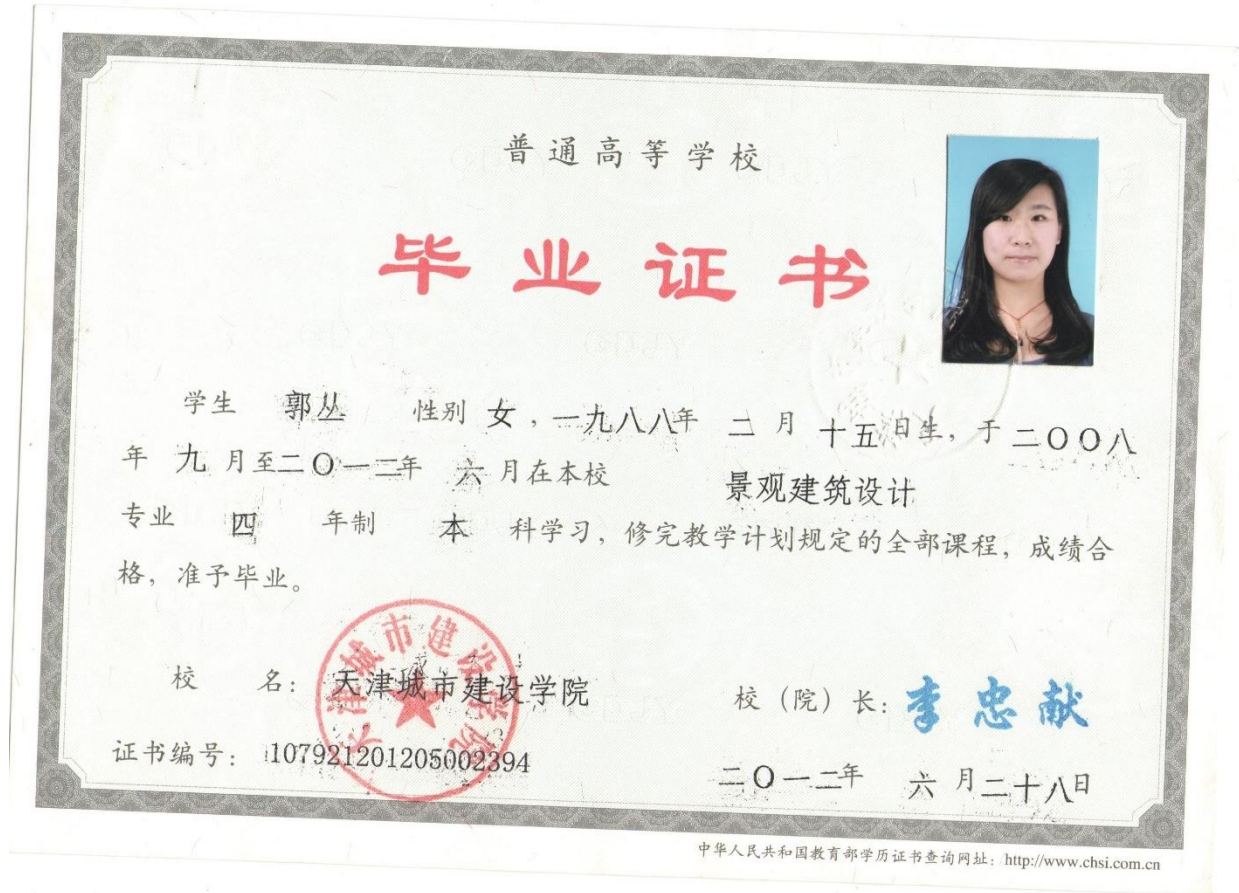 普通高等学校
毕业证书
学生 郭丛 性别 女，一九八八年 二 月 十五日生，于二〇〇八
年 九 月至二〇一二年 六 月在本校 景观建筑设计
专业 四 年制 本 科学习，修完教学计划规定的全部课程，成绩合
格，准予毕业。
天津城市建设学院
校 名：天津城市建设学院 校（院）长：李忠献
证书编号：107921201205002394 二〇一二年 六 月二十八日
中华人民共和国教育部学历证书查询网址：http://www.chsi.com.cn